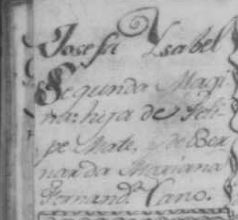 Josefa Ysabel
Segunda Magi
na: hija de Feli
pe Mate. y de Ber
narda Mariana
Fernand.^z Cano.